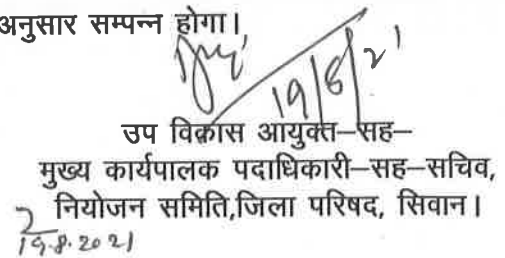 अनुसार सम्पन्न होगा।
19/8/21
उप विकास आयुक्त–सह–
मुख्य कार्यपालक पदाधिकारी–सह–सचिव,
नियोजन समिति,जिला परिषद, सिवान।
19.8.2021